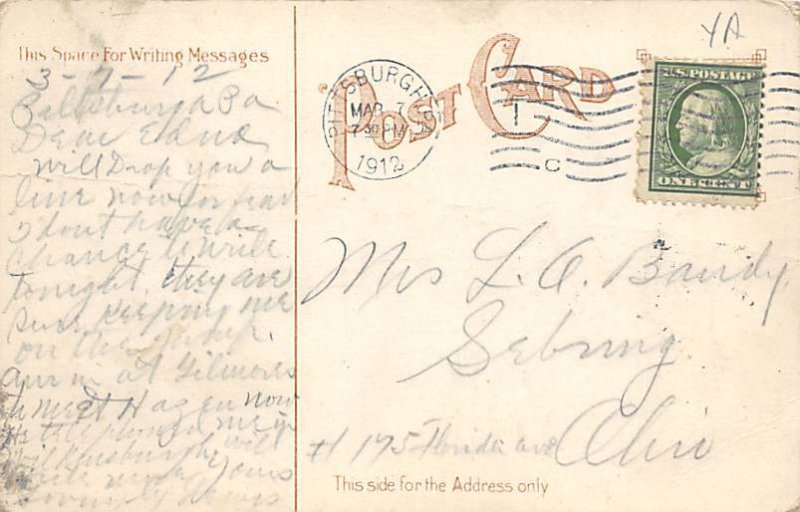 This Space For Writing Messages
3-7-12
Pittsburg Pa
Dear Edna
Will Drop you a
line now for fear
I dont have a
chance to write
tonight. they are
sure keeping me
on the jump.
am in at Gilmores
to meet Hagen now
He telephoned me in
Wilkinsburg will
write more yours
Lovingly
YA
POST CARD
PITTSBURGH, PA
MAR 7
7-30 PM
1912
C
U.S. POSTAGE
ONE CENT
Mrs L. A. Bandy,
Sebring
# 175 Florida ave Ohio
This side for the Address only